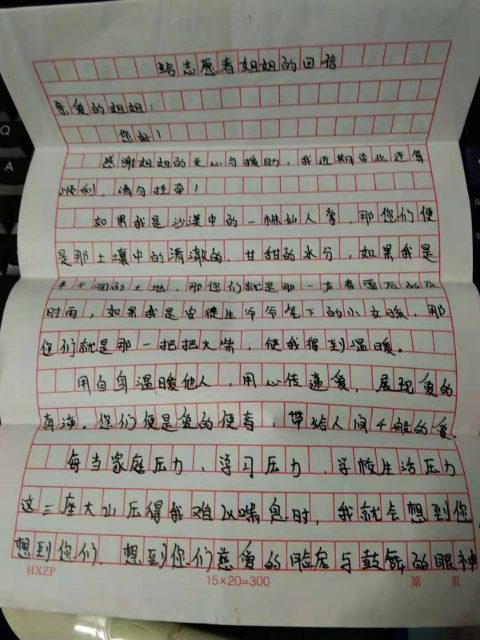 给志愿者姐姐的回信
亲爱的姐姐：
您好！
感谢姐姐的关心与援助，我近期学业还算
顺利，请勿挂牵！
如果我是沙漠中的一株仙人掌，那你们便
是那土壤中的清澈的、甘甜的水分，如果我是
的土地，那你们就是那一
时雨，如果我是安徒生爷爷笔下的小女孩，那
你们就是那一把把火柴，使我得到温暖。
用自身温暖他人，用心传递爱，展现爱的
真谛。你们便是爱的使者，带给人间千般的爱。
每当家庭压力、学习压力、学校生活压力
这三座大山压得我难以喘息时，我就会想到您
想到你们，想到你们慈爱的脸庞与鼓舞的眼神
HXZP 15×20=300 第 页
Q
A